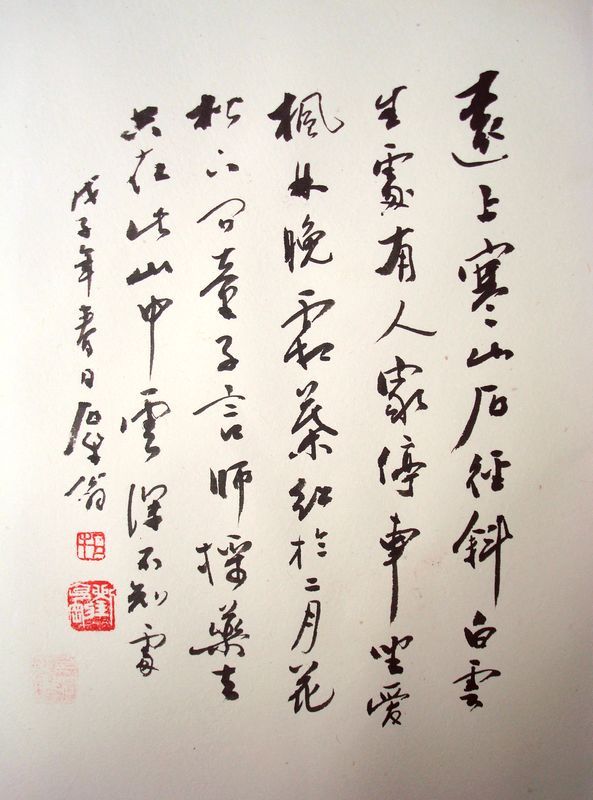 遠上寒山石徑斜白雲
生處有人家停車坐愛
楓林晚霜葉紅於二月花
松下問童子言師採藥去
只在此山中雲深不知處
戊子年春日